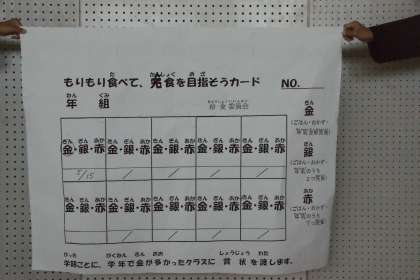 もりもり食べて、完食を目指そうカード NO.
年 組 給食委員会
金・銀・赤 金・銀・赤 金・銀・赤 金・銀・赤 金・銀・赤
5/15 / / / /
金・銀・赤 金・銀・赤 金・銀・赤 金・銀・赤 金・銀・赤
/ / / /
金
(ごはん・おかず・
銀
(ごはん・おかず・
赤
(ごはん・おかず・
学級ごとに、学年で金が多かったクラスに賞状を渡します。